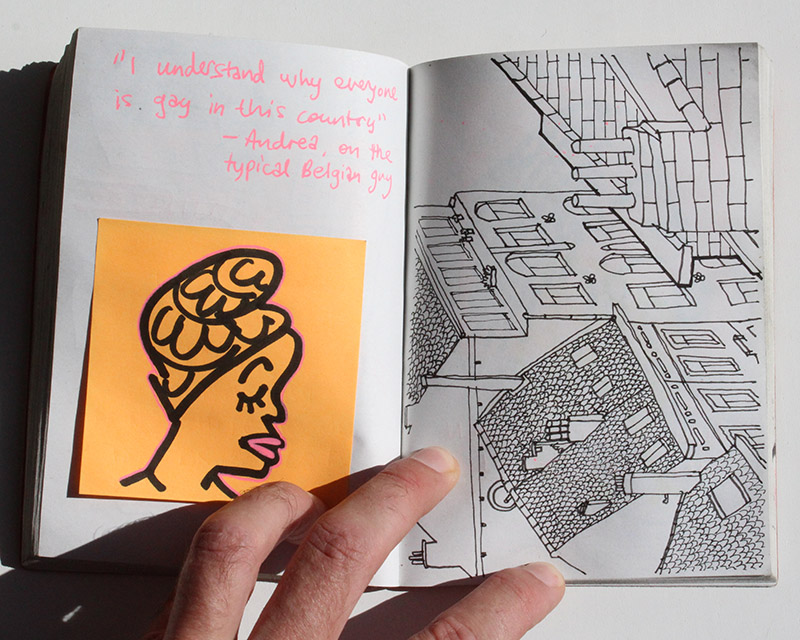 "I understand why everyone
is gay in this country"
– Andrea, on the
typical Belgian guy